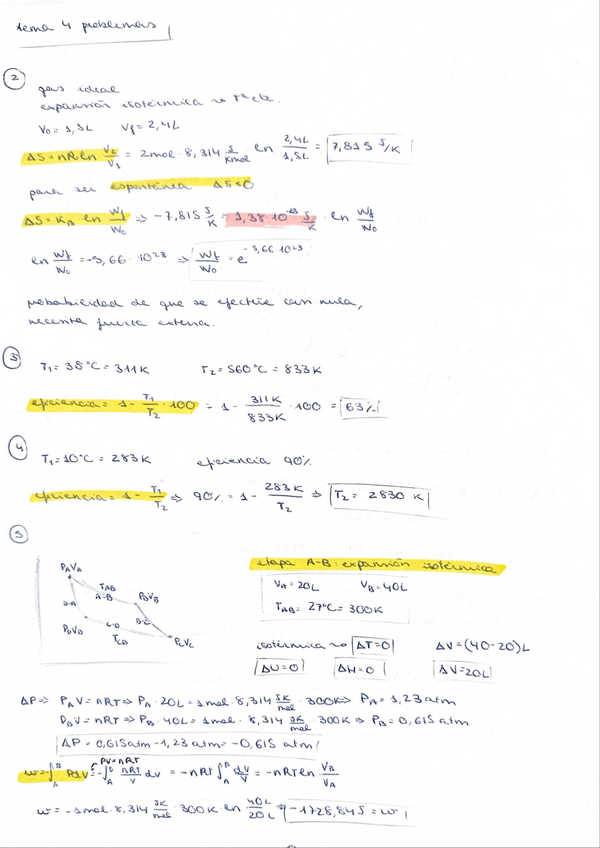 tema 4 problemas
2
gas ideal
expansión isotérmica → Tª cte.
V₀ = 1,5L    Vf = 2,4L
ΔS = nR ln V₂/V₁ = 2mol · 8,314 J/Kmol · ln 2,4L/1,5L = 7,815 J/K
para ser espontánea ΔS<0
ΔS = K_B ln Wf/W₀ ⇒ -7,815 J/K = 1,38·10⁻²³ J/K · ln Wf/W₀
ln Wf/W₀ = -5,66·10²³ ⇒ Wf/W₀ = e^(-5,66·10²³)
probabilidad de que se efectúe casi nula,
necesita fuerza externa.
3
T₁ = 38°C = 311K    T₂ = 560°C = 833K
eficiencia = 1 - T₁/T₂ · 100 = 1 - 311K/833K · 100 = 63%
4
T₁ = 10°C = 283K    eficiencia 90%
eficiencia = 1 - T₁/T₂ ⇒ 90% = 1 - 283K/T₂ ⇒ T₂ = 2830 K
5
etapa A-B: expansión isotérmica
P_A V_A
T_AB
A-B
P_B V_B
D-A
B-C
P_D V_D
C-D
T_CD
P_C V_C
V_A = 20L    V_B = 40L
T_AB = 27°C = 300K
isotérmica → ΔT=0    ΔV = (40-20)L
ΔU=0    ΔH=0    ΔV=20L
ΔP ⇒ P_A V = nRT ⇒ P_A · 20L = 1mol · 8,314 JK/mol · 300K ⇒ P_A = 1,23 atm
P_B V = nRT ⇒ P_B · 40L = 1mol · 8,314 JK/mol · 300K ⇒ P_B = 0,615 atm
ΔP = 0,615atm - 1,23 atm = -0,615 atm
PV=nRT
w = -∫_A^B PdV = -∫_A^B nRT/V dV = -nRT ∫_A^B dV/V = -nRT ln V_B/V_A
w = -1mol · 8,314 JK/mol · 300K ln 40L/20L = -1728,84J = w